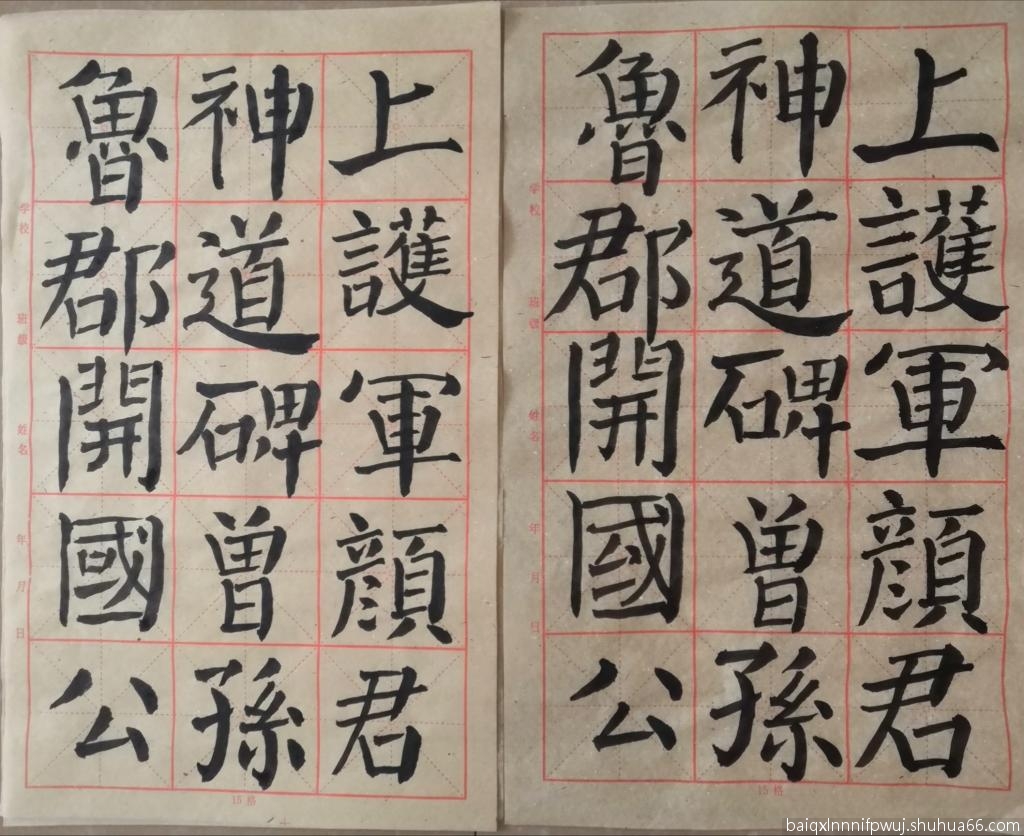 上護軍顔君
神道碑曾孫
魯郡開國公
学校
班级
姓名
年
月
日
15格
上護軍顔君
神道碑曾孫
魯郡開國公
学校
班级
姓名
年
月
日
15格
baiqxlnnnifpwuj.shuhua66.com